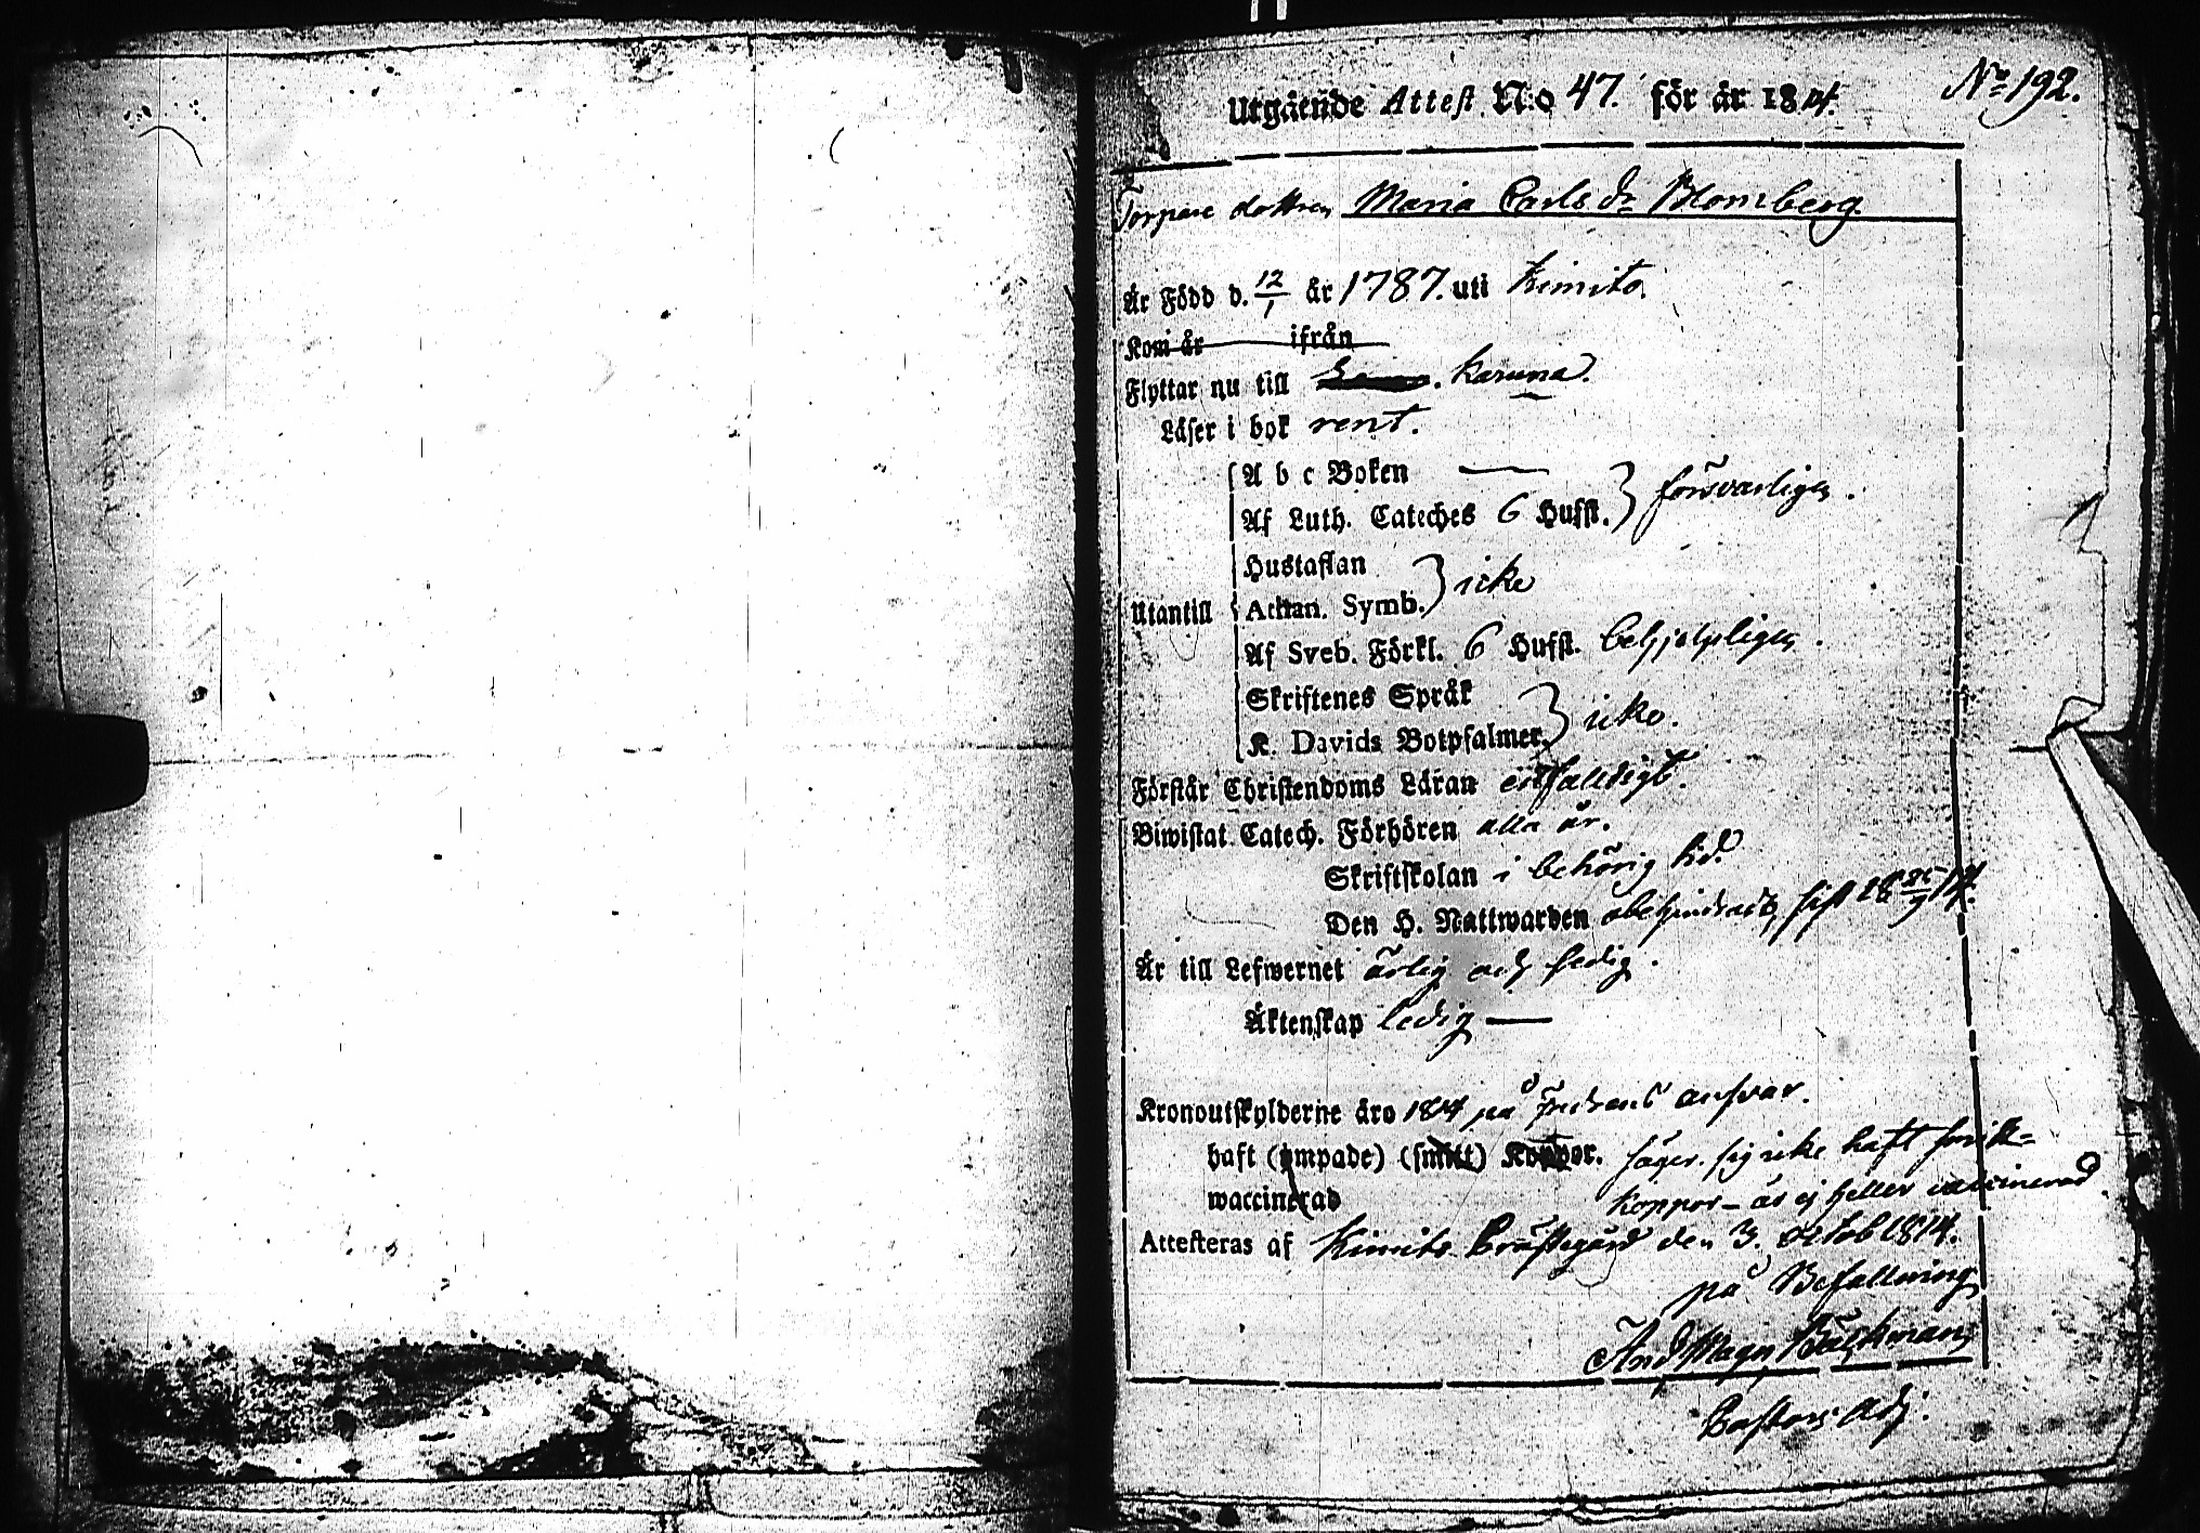 No 192.
Utgående Attest N:o 47. för år 1814.
Torpare dottren Maria Carls dr Blomberg.
Är Född d. 12/1 år 1787. uti Kimito.
Kom år ifrån
Flyttar nu till Karuna.
Läser i bok rent.
A b c Boken —
Af Luth. Cateches 6 Hufst. } försvarligen.
Hustaflan
Athan. Symb. } icke
Utantill
Af Sveb. Förkl. 6 Hufst. behjelpligen.
Skriftenes Språk
K. Davids Botpsalmer } icke.
Förstår Christendoms Läran enfaldigt.
Biwistat Catech. Förhören alla år.
Skriftskolan i behörig tid.
Den H. Nattwarden obehindrad, sist 18 25/9 14.
Är till Lefwernet ärlig och sedig.
Äktenskap ledig —
Kronoutskylderne äro 1814 på fadrens ansvar.
haft (ympade) (smitt) Koppor. säger sig icke haft smitt-
waccinerad koppor - är ej heller vaccinerad.
Attesteras af Kimito Prästegård den 3. Octob 1814.
på Befallning
And Magn Bäckman
Pastors Adj.